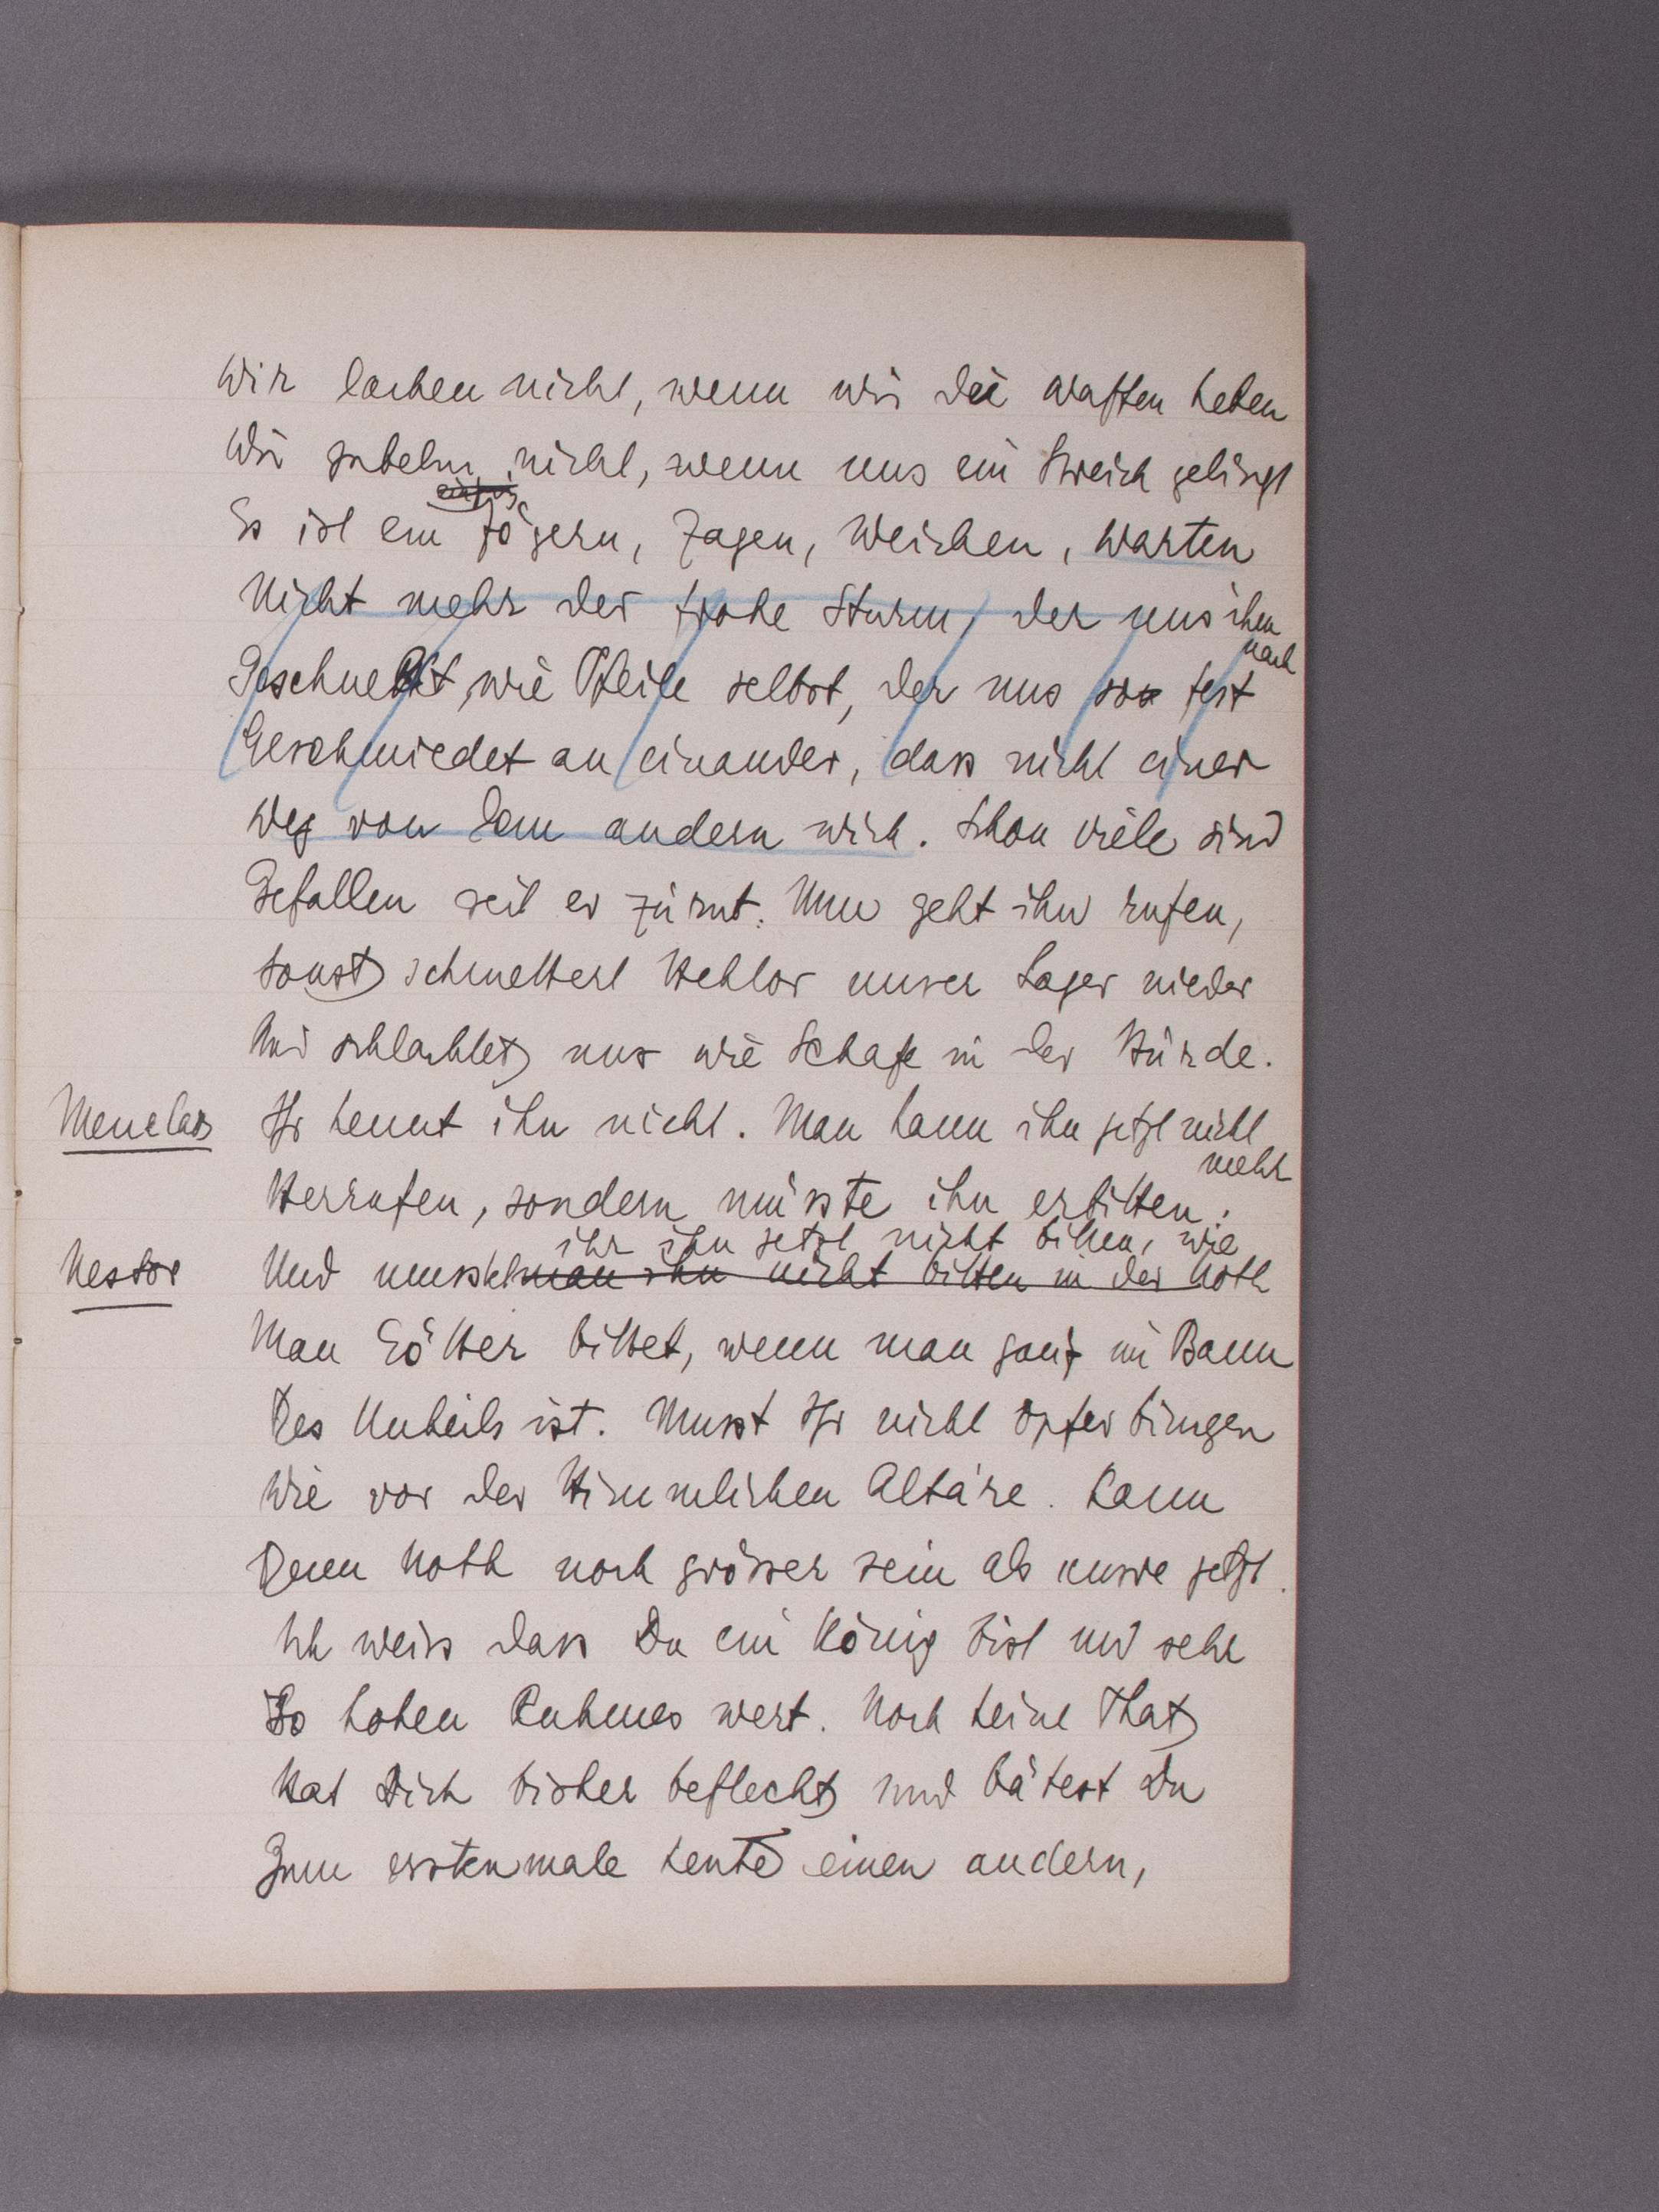 Wir lachen nicht, wenn wir die Waffen heben
Wir jubeln nicht, wenn uns ein Streich gelingt
Es ist ein Zögern, Zagen, Weichen, Warten
Nicht mehr der frohe Sturm, der uns ihm
nach
Geschnellt, wie Pfeile selbst, der uns so fest
Geschmiedet an einander, dass nicht einer
Weg von dem andern wich. Schon viele sind
Gefallen seit er zürnt. Nun geht ihn rufen,
Sonst schmettert Hektor unser Lager nieder
Und schlachtet uns wie Schafe in der Hürde.
Menelas Ihr kennt ihn nicht. Man kann ihn jetzt nicht
mehr
Herrufen, sondern müsste ihn erbitten.
ihr ihn jetzt nicht bitten, wie
Nestor Und musst man ihn nicht bitten in der Noth
Man Götter bittet, wenn man ganz im Bann
Des Unheils ist. Musst Ihr nicht Opfer bringen
Wie vor der Himmlischen Altäre. Kann
Denn Noth noch grösser sein als unsre jetzt.
Ich weiss dass Du ein König bist und sehr
So hohen Ruhmes wert. Noch keine That
Hat Dich bisher befleckt und bätest Du
Zum erstenmale heute einen andern,